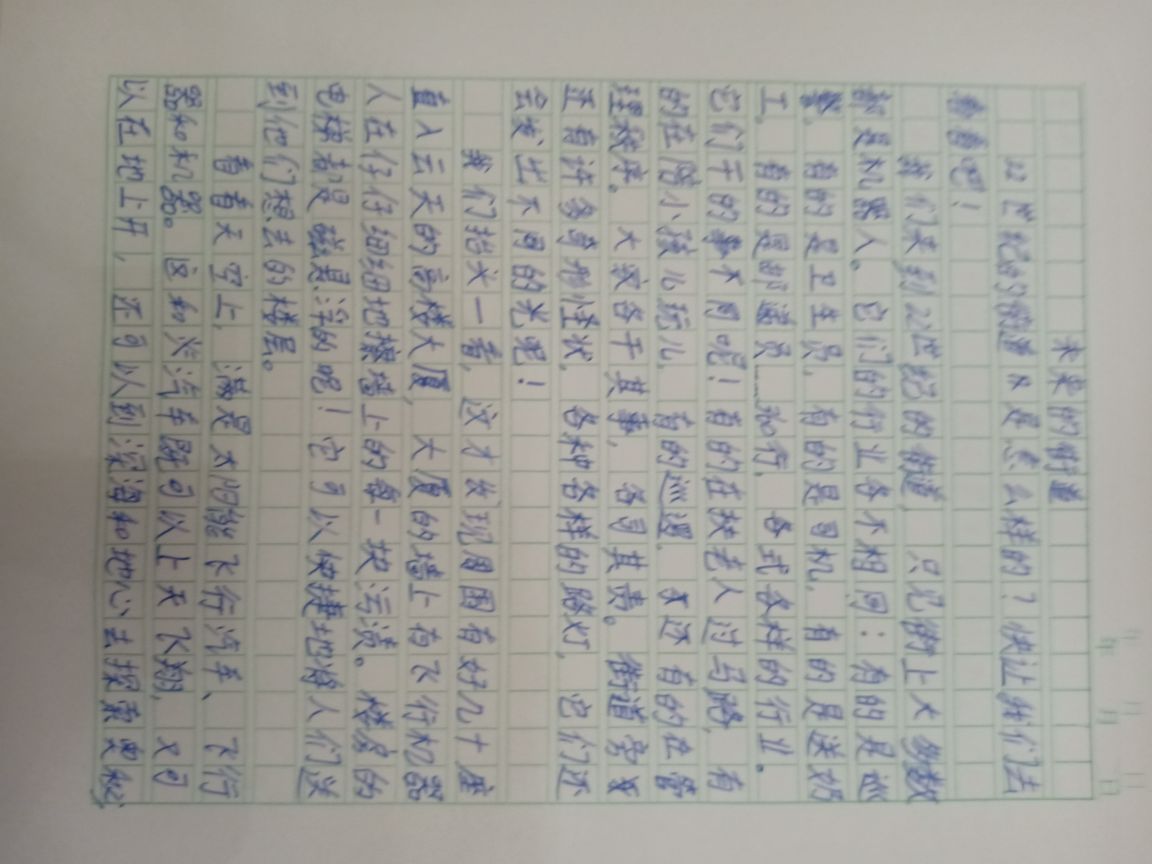 未来的街道
22世纪的街道又是怎么样的？快让我们去
看看吧！
我们来到22世纪的街道，只见街上大多数
都是机器人。它们的行业各不相同：有的是巡
警，有的是卫生员，有的是司机，有的是送奶
工，有的是邮递员……如行，各式各样的行业。
它们干的事不同呢！有的在扶老人过马路，有
的在陪小孩儿玩儿，有的巡逻，还有的在管
理秩序。大家各干其事，各司其责。街道旁
还有许多奇形怪状，各种各样的路灯，它们还
会发出不同的光呢！
我们抬头一看，这才发现周围有好几十座
直入云天的高楼大厦，大厦的墙上有飞行机器
人在仔仔细细地擦墙上的每一块污渍。楼房的
电梯都是磁悬浮的呢！它可以快捷地将人们送
到他们想去的楼层。
看看天空上，满是太阳能飞行汽车、飞行
器和机器。这和火汽车既可以上天飞翔，又可
以在地上开，还可以到深海和地心去探索奥秘